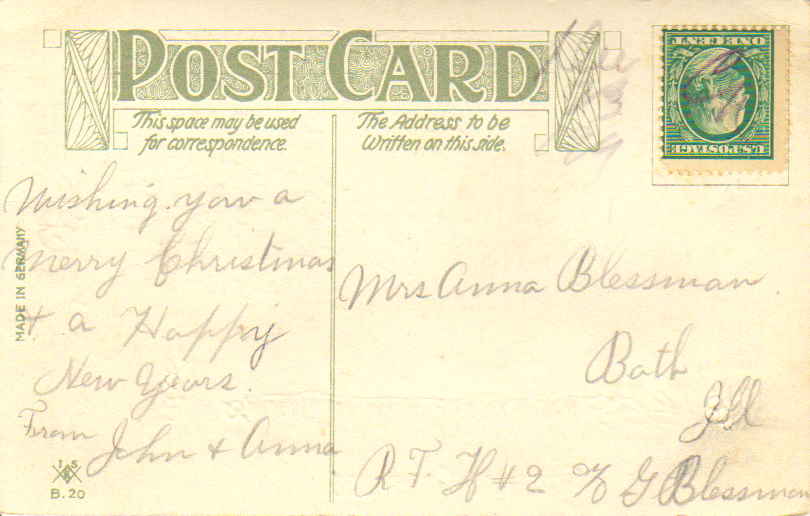 POST CARD
This space may be used
for correspondence.
The Address to be
Written on this side.
U.S. POSTAGE
ONE CENT
Wishing you a
Merry Christmas
+ a Happy
New Years.
From John + Anna
MADE IN GERMANY
B.20
Mrs Anna Blessman.
Bath
Ill
R F H #2 % G Blessman